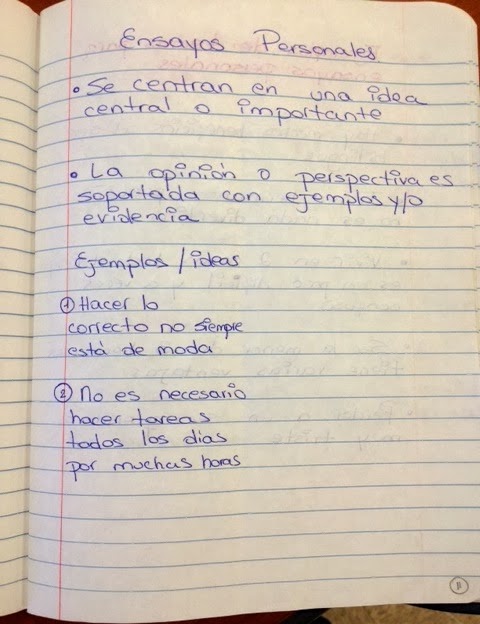 Ensayos Personales
• Se centran en una idea
central o importante
• La opinión o perspectiva es
soportada con ejemplos y/o
evidencia
Ejemplos / ideas
① Hacer lo
correcto no siempre
está de moda
② No es necesario
hacer tareas
todos los dias
por muchas horas